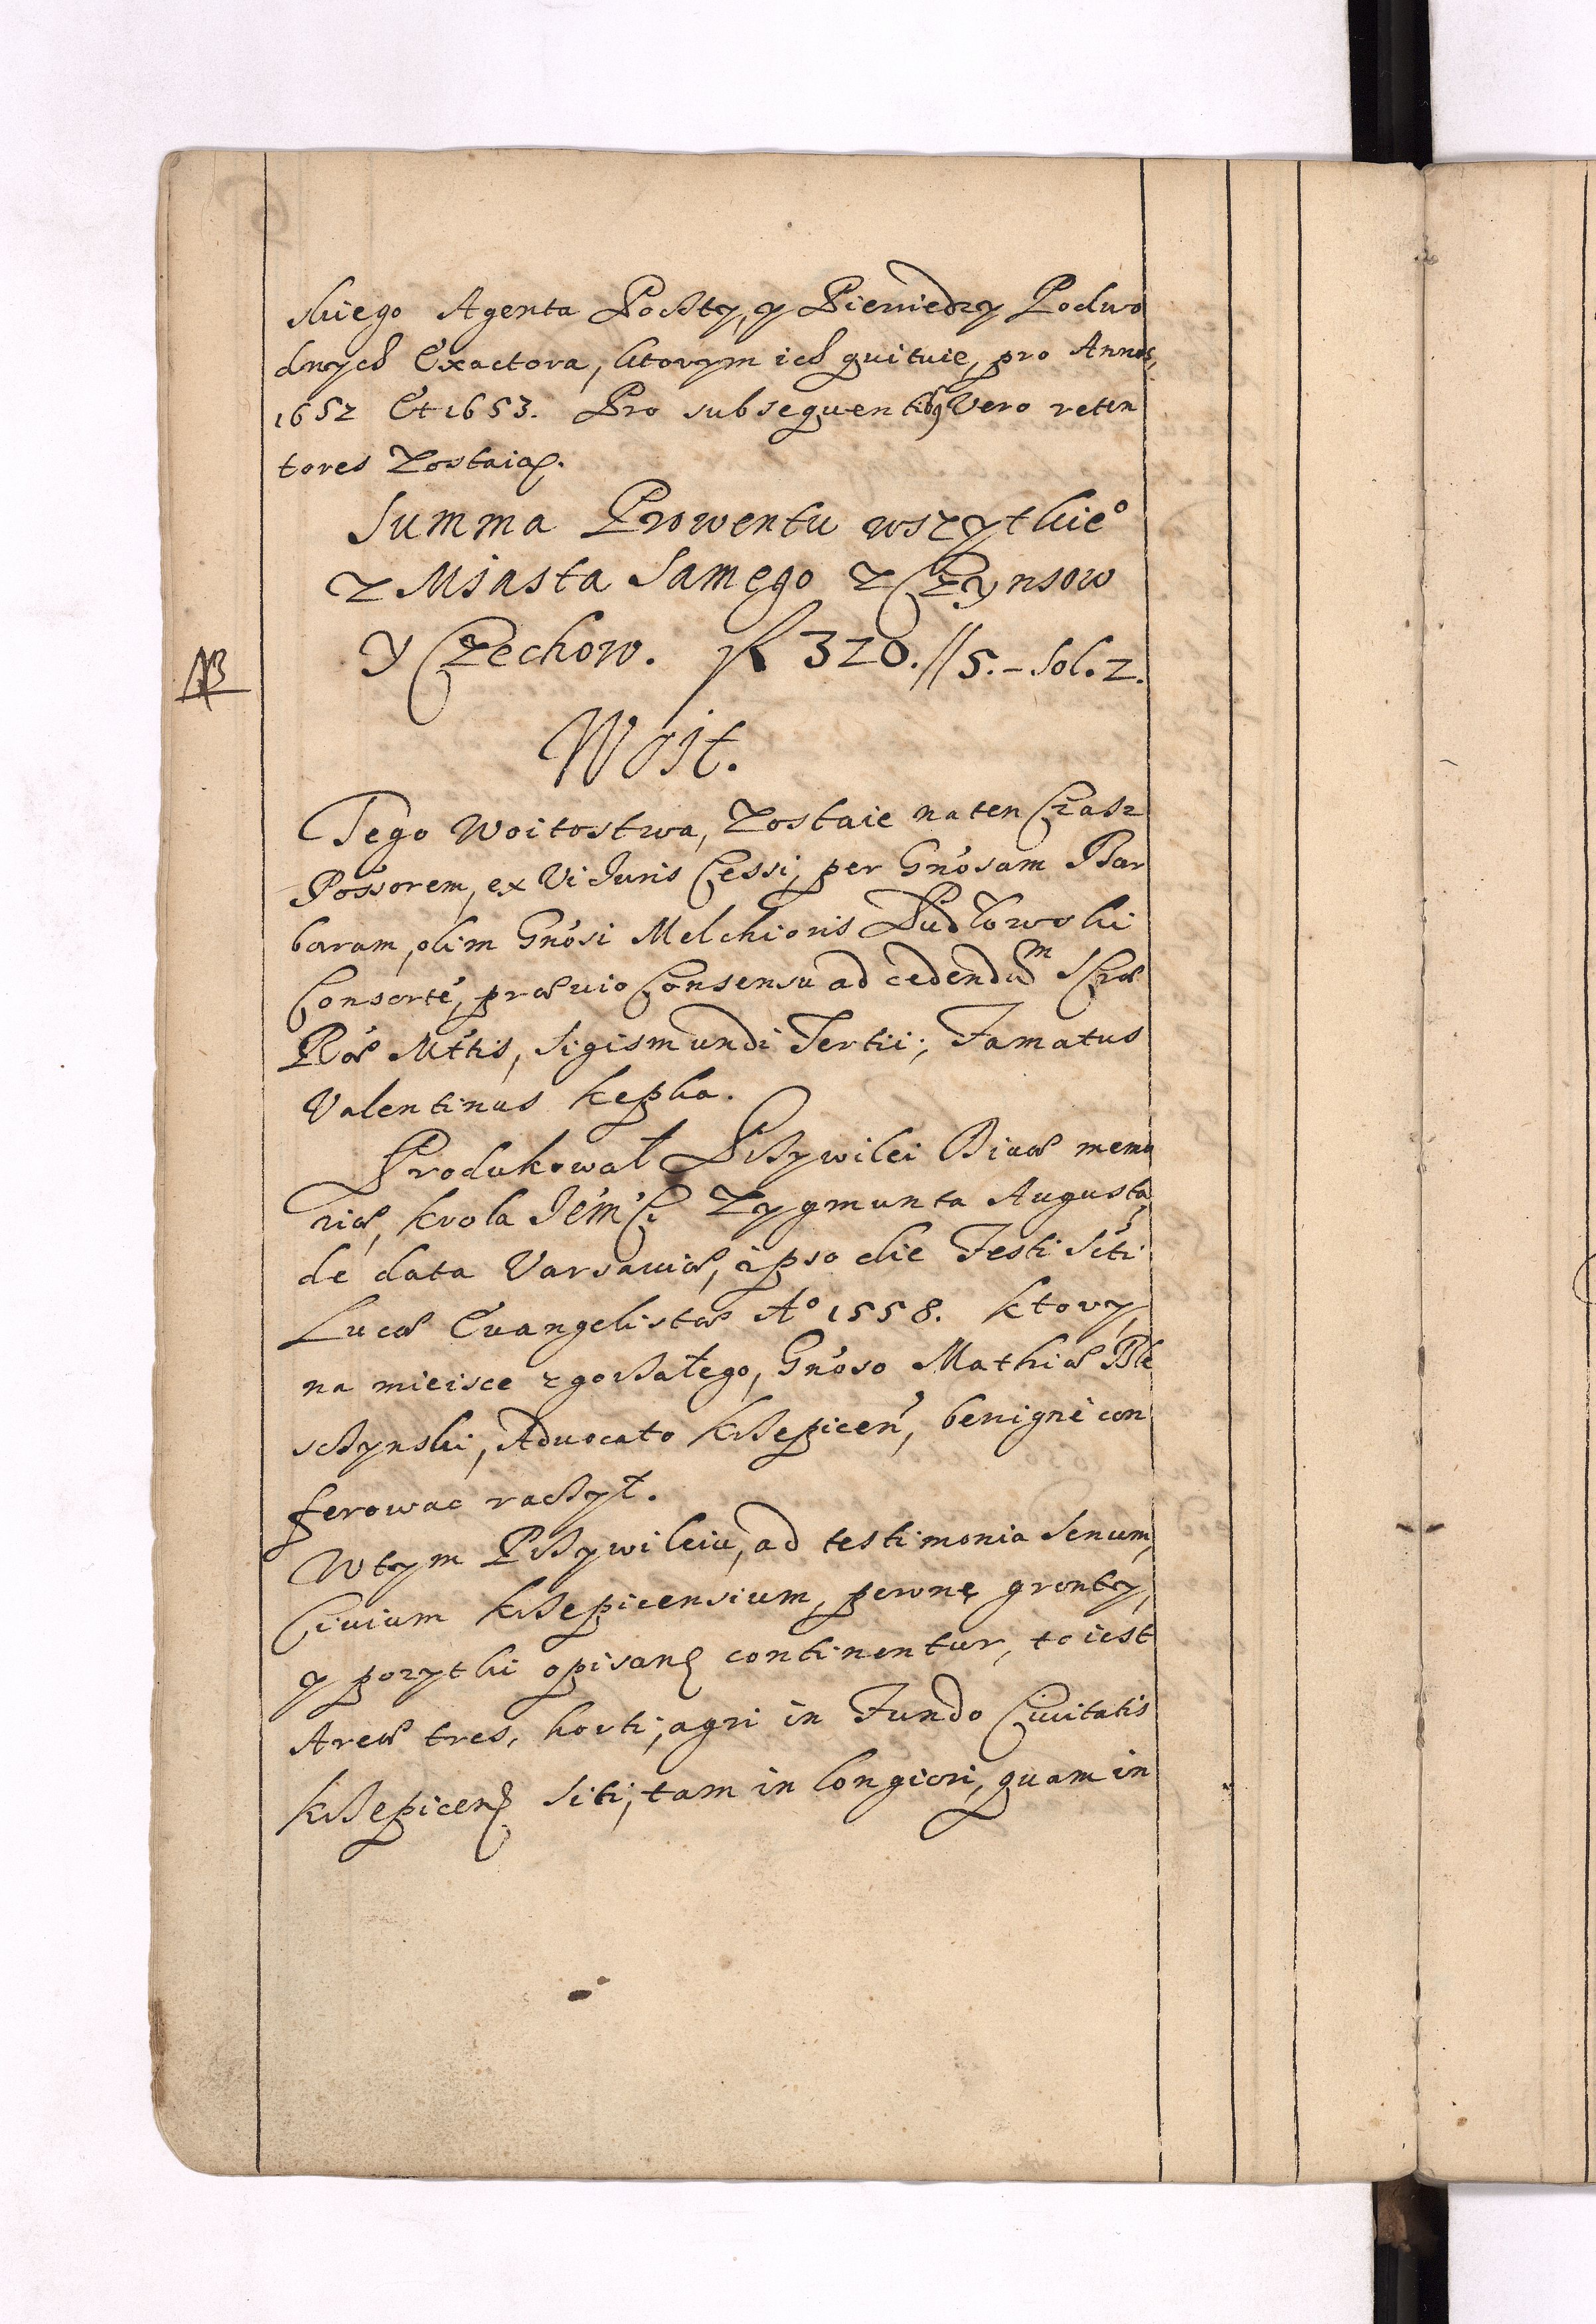 skiego Agenta Poszty, y Pieniedzy Podwo
dnych Exactora, ktorym ich quituie, pro Annos,
1652 Et 1653. Pro subsequentibq Vero reten
tores Zostaią.
Summa Prowentu wszytkieº
z Miasta Samego z Czynsow
y Czechow. fl 320.//5.-Sol.2.
NB
Woit.
Tego Woitostwa, Zostaie na ten Czasz
Possorem, ex Vi Iuris Cessi, per Gnosam Bar
baram, olim Gnosi Melchioris Pudłowski
Consorte, præuio Consensu ad cedendum SCræ
Ræ Mttis, Sigismundi Tertii, Famatus
Valentinus Kepka.
Produkował Przywilei Diuæ memo
riæ, Krola JémCi Zygmunta Augusta,
de data Varsauiæ, ipso die Festi Scti
Lucæ Euangelistæ Aº 1558. Ktory,
na mieisce zgorzałego, Gnoso Mathiæ Ble
szczynski, Aduocato Krzepicen, benignè con
ferowac raczył.
W tym Przywileiu, ad testimonia Senum,
Ciuium Krzepicensium, pewne gronty,
y pozytki opisane continentur, to iest
Areæ tres, horti, agri in Fundo Ciuitatis
Krzepicen siti, tam in longiori, quam in